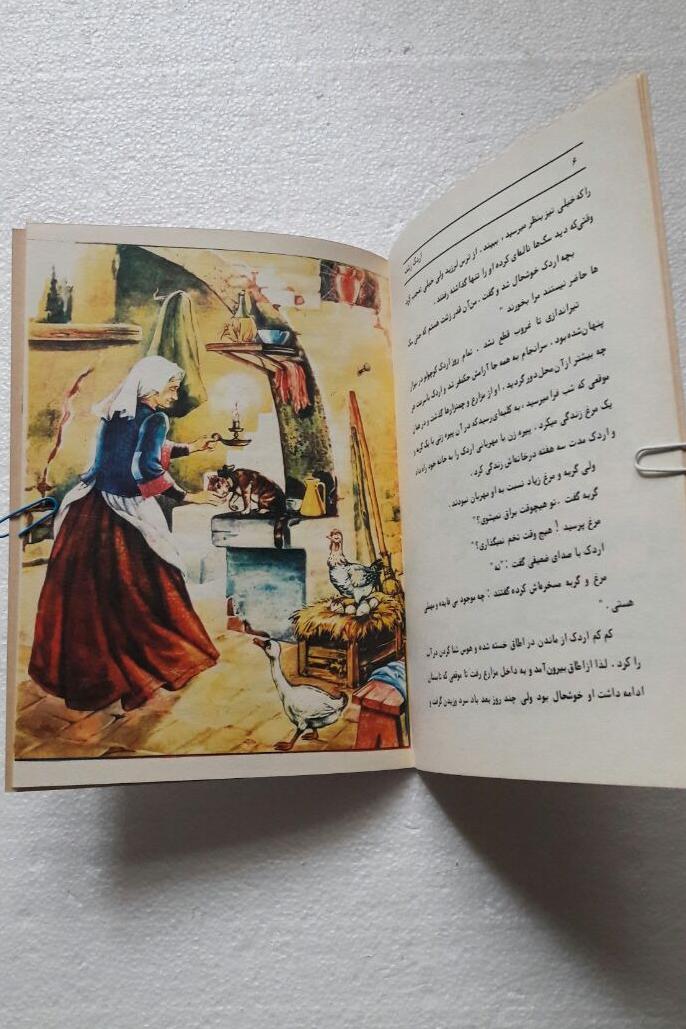 ۶
اردک زشت
را که خیلی نیز بنظر میرسید، ببیند. از ترس لرزید ولی خیلی تعجب کرد
وقتی‌که دید سگ‌ها ناله‌ای کرده او را تنها گذاشته رفتند.
بچه اردک خوشحال شد و گفت. من آن قدر زشت هستم که حتی سگ
ها حاضر نیستند مرا بخورند "
تیراندازی تا غروب قطع نشد. تمام روز اردک کوچولو در نیزار
پنهان شده بود. سرانجام به همه جا آرامش حکمفرما شد و اردک با سرعت هر
چه بیشتر از آن محل دور گردید. او از مزارع و چمنزارها گذشت و در همان
موقعی که شب فرا میرسید، به کلبه‌ای رسید که در آن پیره زنی با یک گربه و
یک مرغ زندگی میکرد. پیره زن با مهربانی اردک را به خانه خود راه داد
و اردک مدت سه هفته در خانه‌اش زندگی کرد.
ولی گربه و مرغ زیاد نسبت به او مهربان نبودند.
گربه گفت. تو هیچوقت براق نمیشوی؟"
مرغ پرسید! هیچ وقت تخم نمیگذاری؟"
اردک با صدای ضعیفی گفت: "نه"
مرغ و گربه مسخره‌اش کرده گفتند: چه موجود بی فایده و مهملی
هستی. "
کم کم اردک از ماندن در اطاق خسته شده و هوس شنا کردن در آب
را کرد. لذا از اطاق بیرون آمد و به داخل مزارع رفت تا موقعی که تابستان
ادامه داشت او خوشحال بود ولی چند روز بعد باد سرد وزیدن گرفت و